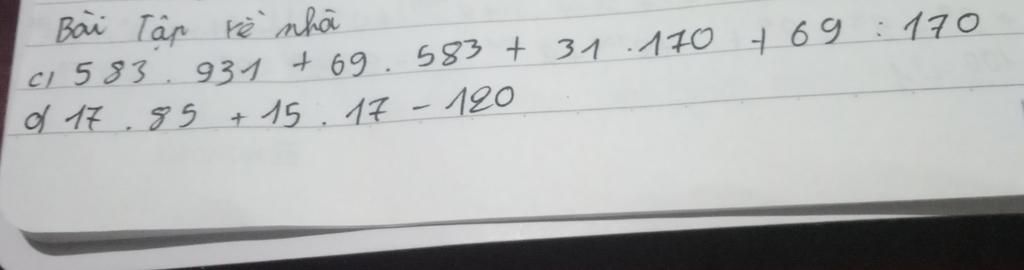 Bài Tập về nhà
c) 583 . 931 + 69 . 583 + 31 . 170 + 69 : 170
d) 17 . 85 + 15 . 17 - 120